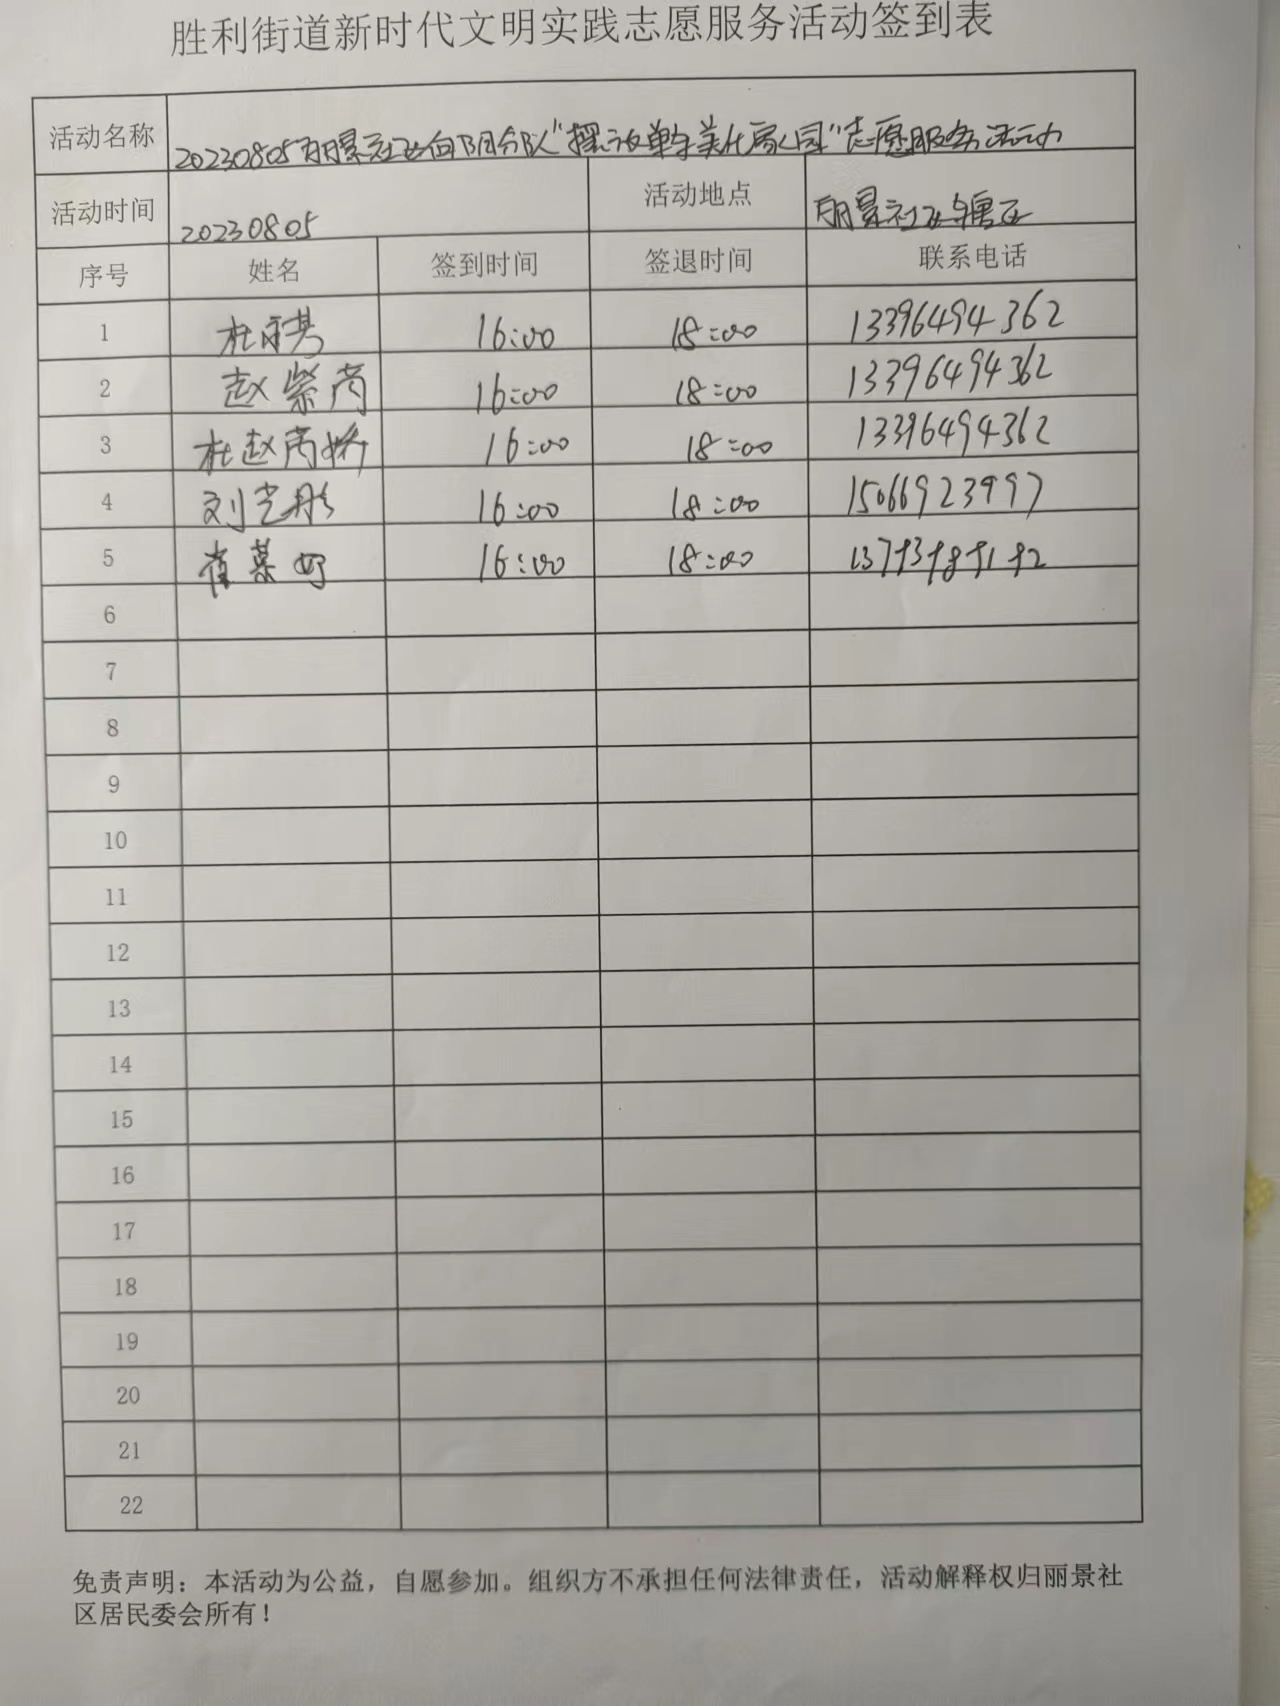 胜利街道新时代文明实践志愿服务活动签到表
活动名称 20230805丽景社区向阳分队"摆放单车美化家园"志愿服务活动
活动时间 20230805 活动地点 丽景社区辖区
序号 姓名 签到时间 签退时间 联系电话
1 杜 16:00 18:00 13396494362
2 赵紫芮 16:00 18:00 13396494362
3 杜赵芮娇 16:00 18:00 13396494362
4 刘艺彤 16:00 18:00 15066923997
5 崔慕妤 16:00 18:00
6
7
8
9
10
11
12
13
14
15
16
17
18
19
20
21
22
免责声明：本活动为公益，自愿参加。组织方不承担任何法律责任，活动解释权归丽景社
区居民委会所有！